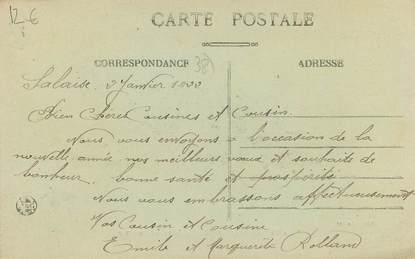 12-6
CARTE POSTALE
CORRESPONDANCE
38
ADRESSE
Salaise, 2 Janvier
Bien Chères Cousines et Cousin.
Nous vous envoyons à l'occasion de la
nouvelle année nos meilleurs vœux et souhaits de
bonheur, bonne santé et prospérité
Nous vous embrassons affectueusement
Vos Cousin et Cousine
Emile et Marguerite Rolland